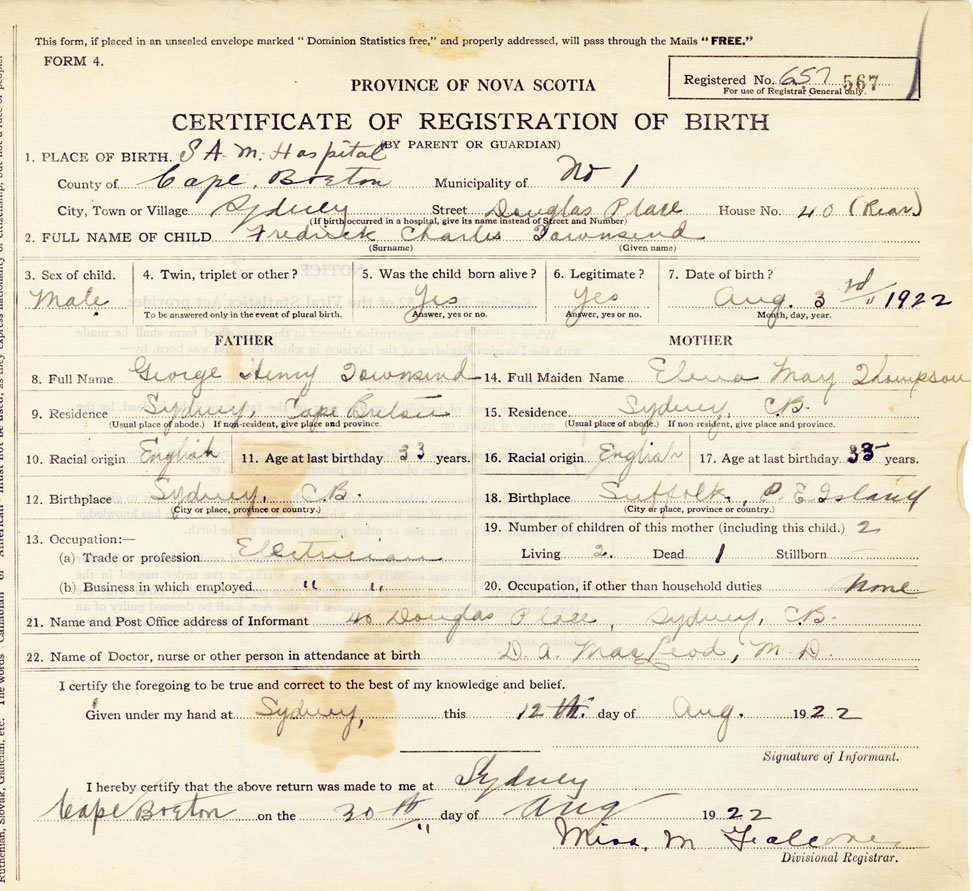 This form, if placed in an unsealed envelope marked "Dominion Statistics free," and properly addressed, will pass through the Mails "FREE."
FORM 4.
Registered No. 657 567
For use of Registrar General only.
PROVINCE OF NOVA SCOTIA
CERTIFICATE OF REGISTRATION OF BIRTH
(BY PARENT OR GUARDIAN)
1. PLACE OF BIRTH. S A. M. Hospital
County of Cape Breton Municipality of No 1
City, Town or Village Sydney Street Douglas Place House No. 40 (Rear)
(If birth occurred in a hospital, give its name instead of Street and Number)
2. FULL NAME OF CHILD Fredrick Charles Townsend
(Surname) (Given name)
3. Sex of child. 4. Twin, triplet or other? 5. Was the child born alive? 6. Legitimate? 7. Date of birth?
Male Yes Yes Aug. 3rd 1922
To be answered only in the event of plural birth. Answer, yes or no. Answer, yes or no. Month, day, year.
FATHER MOTHER
8. Full Name George Henry Townsend 14. Full Maiden Name May Thompson
9. Residence Sydney, Cape Breton 15. Residence Sydney, C.B.
(Usual place of abode.) If non-resident, give place and province. (Usual place of abode.) If non-resident, give place and province.
10. Racial origin English 11. Age at last birthday 33 years. 16. Racial origin English 17. Age at last birthday 35 years.
12. Birthplace Sydney, C.B. 18. Birthplace Suffolk, P. E. Island
(City or place, province or country.) (City or place, province or country.)
13. Occupation:— 19. Number of children of this mother (including this child.) 2
(a) Trade or profession Electrician Living 2. Dead 1 Stillborn —
(b) Business in which employed " " 20. Occupation, if other than household duties None
21. Name and Post Office address of Informant 40 Douglas Place, Sydney, C.B.
22. Name of Doctor, nurse or other person in attendance at birth D. A. MacLeod, M. D.
I certify the foregoing to be true and correct to the best of my knowledge and belief.
Given under my hand at Sydney, this 12th. day of Aug. 1922
Signature of Informant.
I hereby certify that the above return was made to me at Sydney
Cape Breton on the 30th day of Aug 1922
Miss. M
Divisional Registrar.